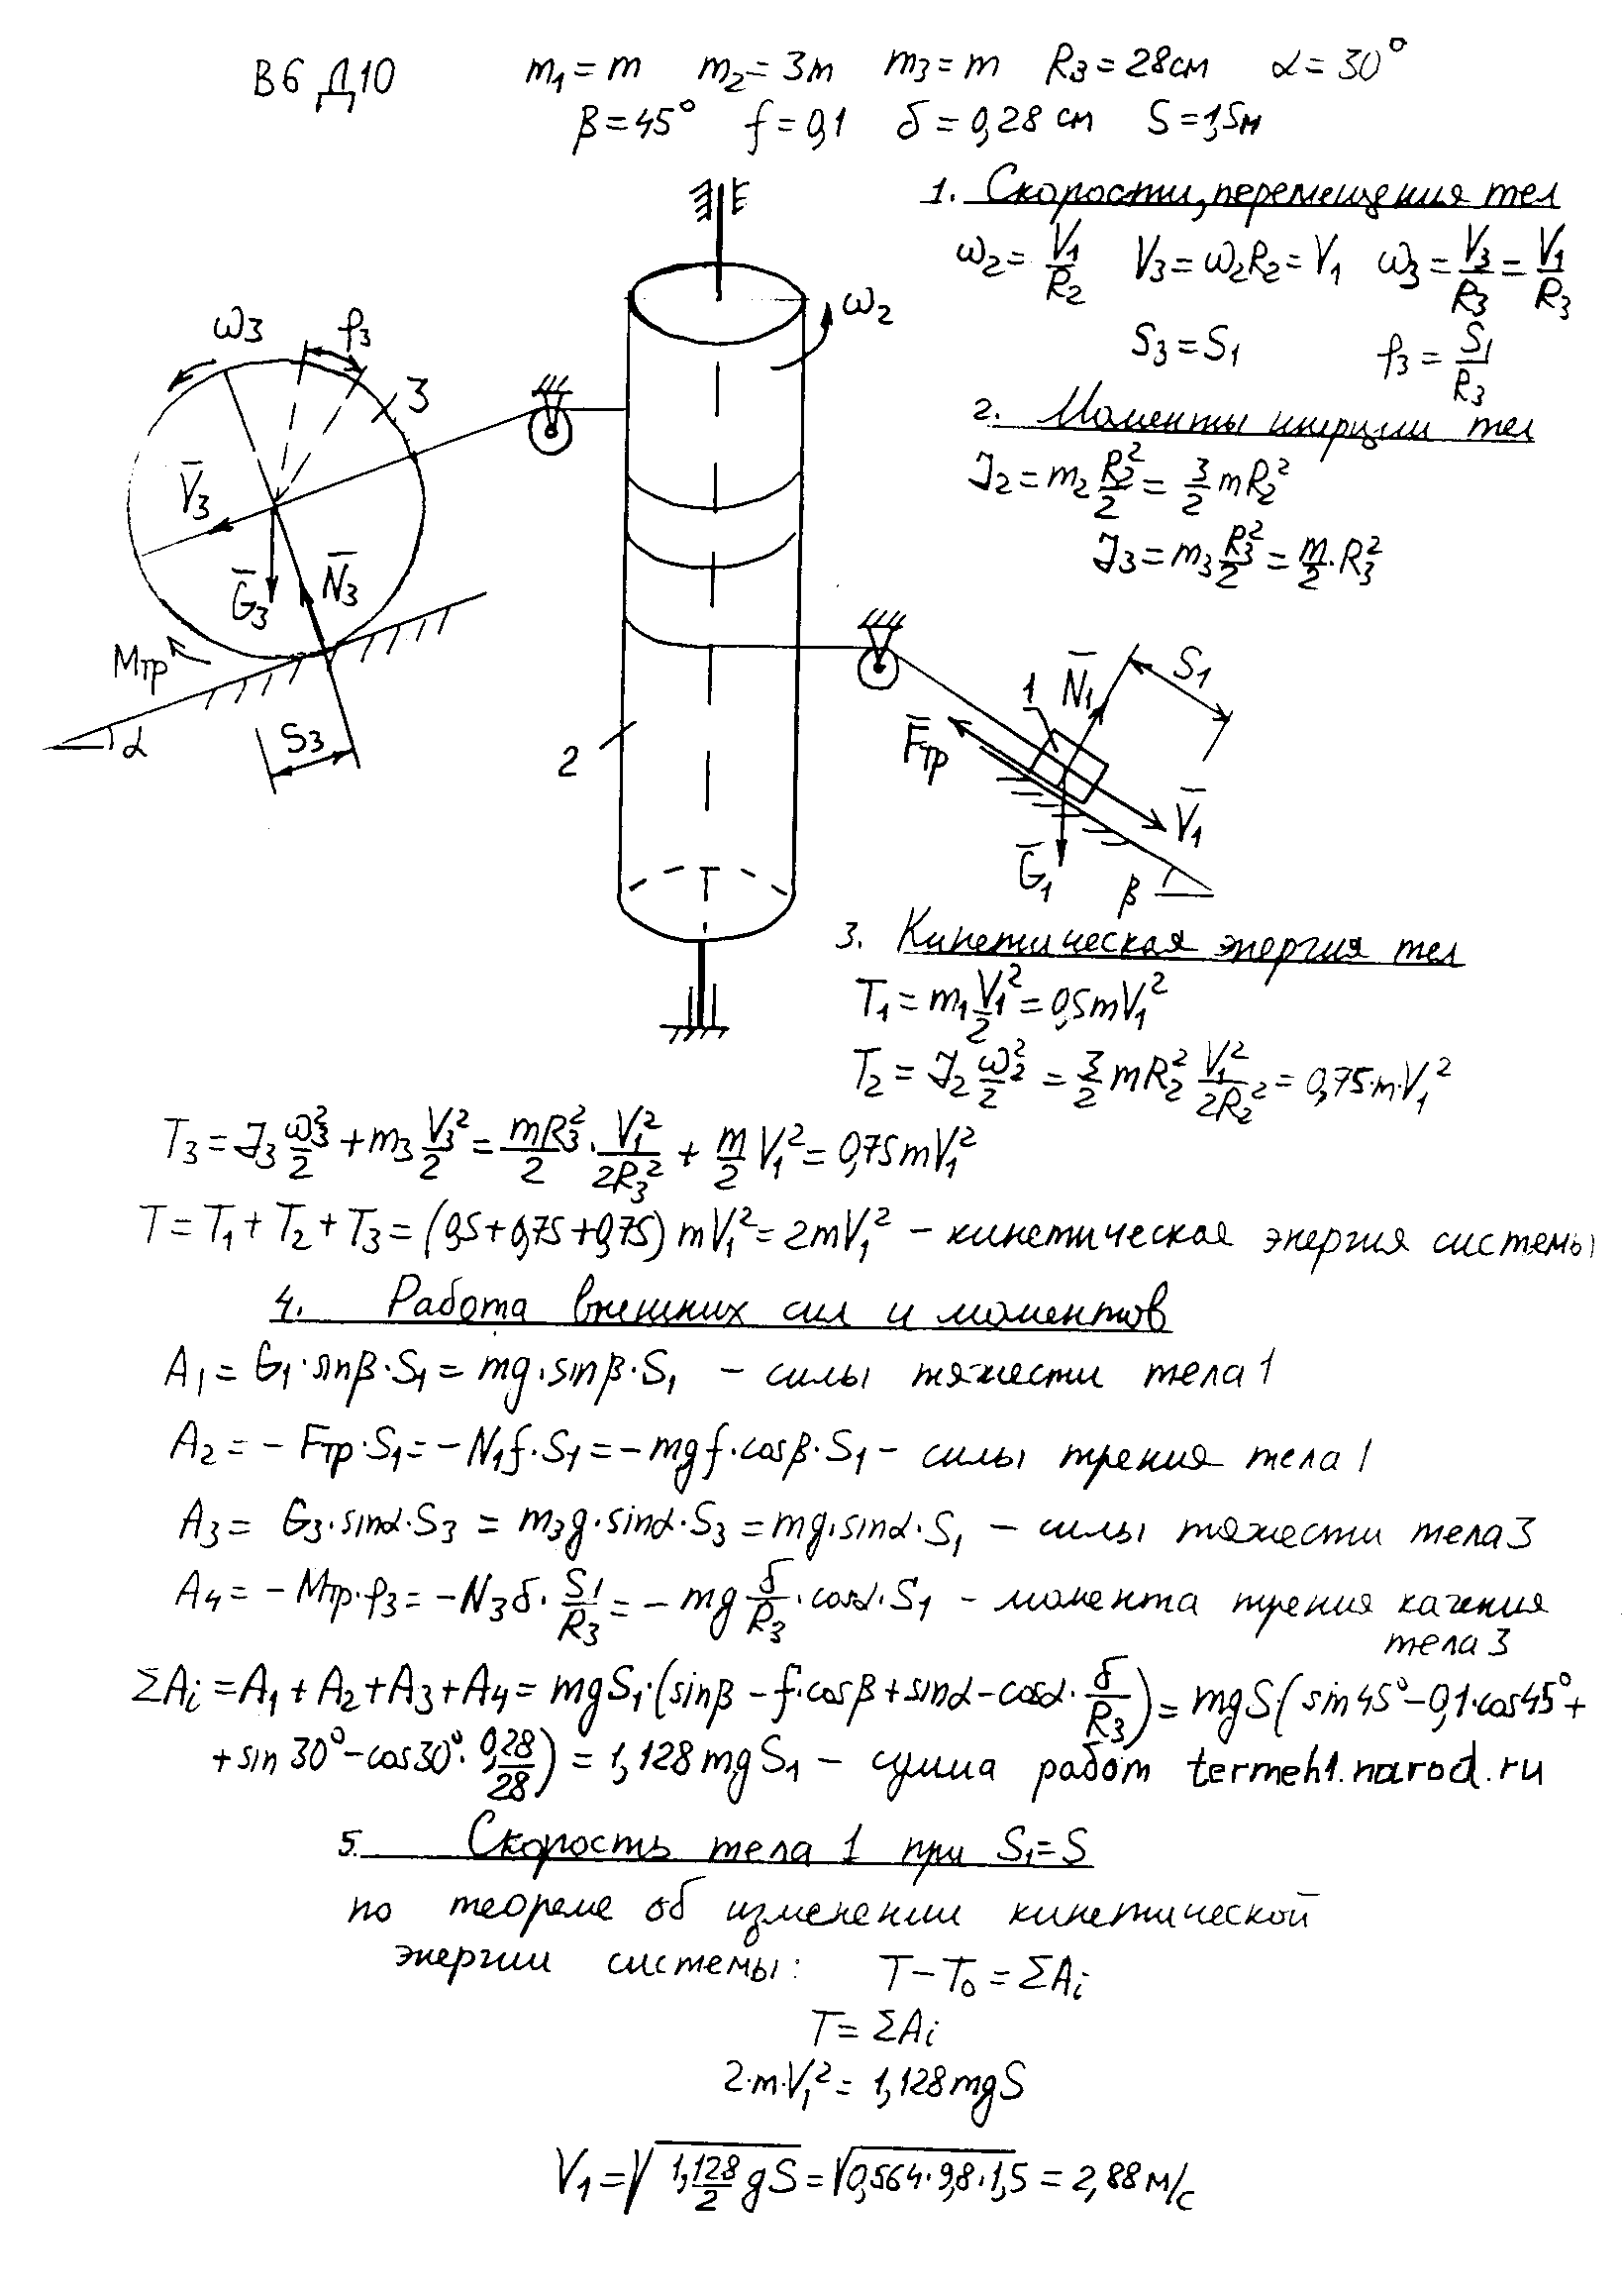 В6 Д10 m₁ = m m₂ = 3m m₃ = m R₃ = 28см α = 30°
β = 45° f = 0,1 δ = 0,28 см S = 1,5м
1. Скорости, перемещения тел
ω₂ = V₁/R₂ V₃ = ω₂R₂ = V₁ ω₃ = V₃/R₃ = V₁/R₃
S₃ = S₁ φ₃ = S₁/R₃
2. Моменты инерции тел
J₂ = m₂ R₂²/2 = 3/2 mR₂²
J₃ = m₃ R₃²/2 = m/2 · R₃²
ω₃ φ₃ 3
V̄₃
Ḡ₃ N̄₃
Mтр
α
S₃
ω₂
2
1 N̄₁ S₁
F̄тр
V̄₁
Ḡ₁
β
3. Кинетическая энергия тел
T₁ = m₁ V₁²/2 = 0,5mV₁²
T₂ = J₂ ω₂²/2 = 3/2 mR₂² V₁²/2R₂² = 0,75·m·V₁²
T₃ = J₃ ω₃²/2 + m₃ V₃²/2 = mR₃²/2 · V₁²/2R₃² + m/2 V₁² = 0,75mV₁²
T = T₁ + T₂ + T₃ = (0,5 + 0,75 + 0,75) mV₁² = 2mV₁² – кинетическая энергия системы
4. Работа внешних сил и моментов
A₁ = G₁·sinβ·S₁ = mg·sinβ·S₁ – силы тяжести тела 1
A₂ = – Fтр·S₁ = –N₁f·S₁ = –mgf·cosβ·S₁ – силы трения тела 1
A₃ = G₃·sinα·S₃ = m₃g·sinα·S₃ = mg·sinα·S₁ – силы тяжести тела 3
A₄ = – Mтр·φ₃ = –N₃δ·S₁/R₃ = – mg δ/R₃·cosα·S₁ – момента трения качения
тела 3
ΣAᵢ = A₁ + A₂ + A₃ + A₄ = mgS₁·(sinβ – f·cosβ + sinα – cosα·δ/R₃) = mgS(sin45° – 0,1·cos45° +
+ sin30° – cos30°·0,28/28) = 1,128mgS₁ – сумма работ termeh1.narod.ru
5. Скорость тела 1 при S₁=S
по теореме об изменении кинетической
энергии системы: T – T₀ = ΣAᵢ
T = ΣAᵢ
2·m·V₁² = 1,128mgS
V₁ = √(1,128/2 gS) = √(0,564·9,8·1,5) = 2,88м/с